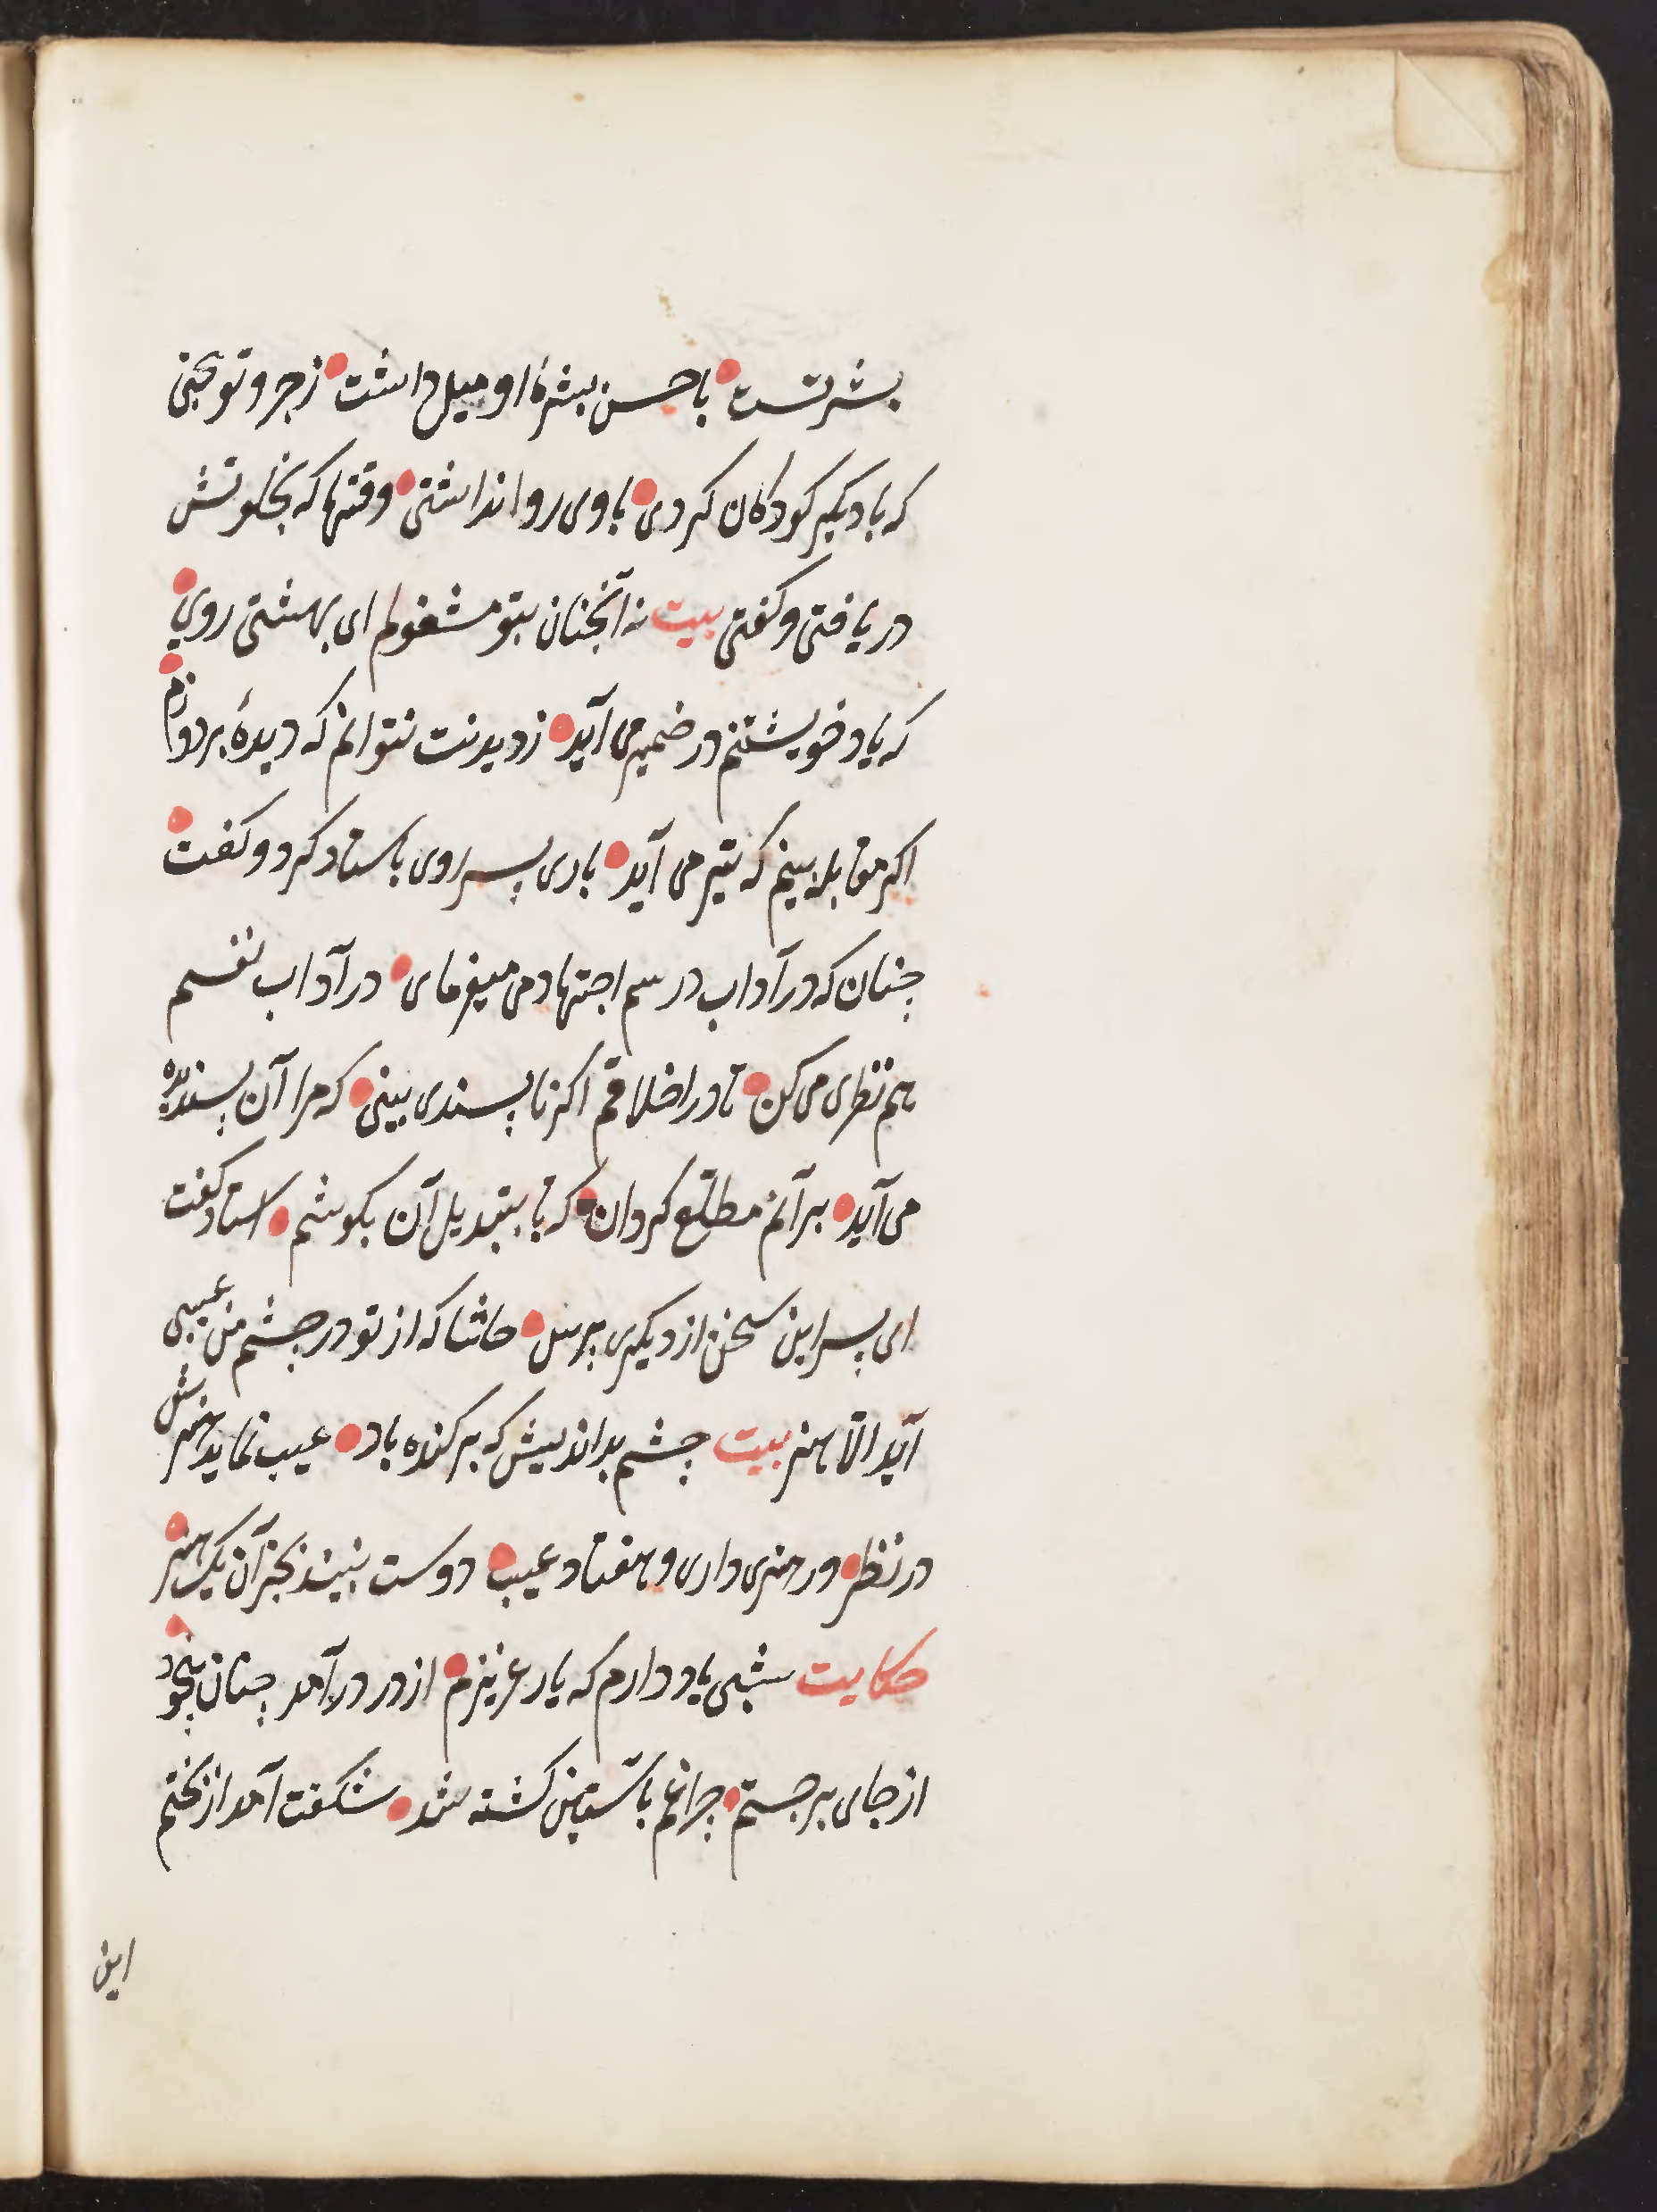 بشرتست باحسن بشرهٔ او میل داشت زجر و توبیخی
که با دیکر کودکان کردی با وی روا نداشتی وقتها که بخلوتش
دریافتی و کفتی بیت نه آنچنان بتو مشغولم ای بهشتی روی
که یاد خویشتنم در ضمیر می آید ز دیدنت نتوانم که دیدهٔ بردوزم
اکر مقابله بینم که تیر می آید باری پسر روی باستاد کرد و کفت
چنان که در آداب درسم اجتهاد می میفرمای در آداب نفسم
هم نظری می کن تا در اخلاقم اکر ناپسندی بینی که مرا آن پسندیده
می آید بر آنم مطلع کردان که تا بتبدیل آن بکوشم استاد کفت
ای پسر این سخن از دیکری پرس حاشا که از تو در چشم من عیبی
آید الّا هنر بیت چشم بداندیش که برکنده باد عیب نماید هنرش
در نظر ور هنری داری و هفتاد عیب دوست نبیند بجز آن یک هنر
حکایت شبی یاد دارم که یار عزیزم از در درآمد چنان بیخود
از جای برجستم چراغم باستین کشته شد شکفت آمد از بختم
این